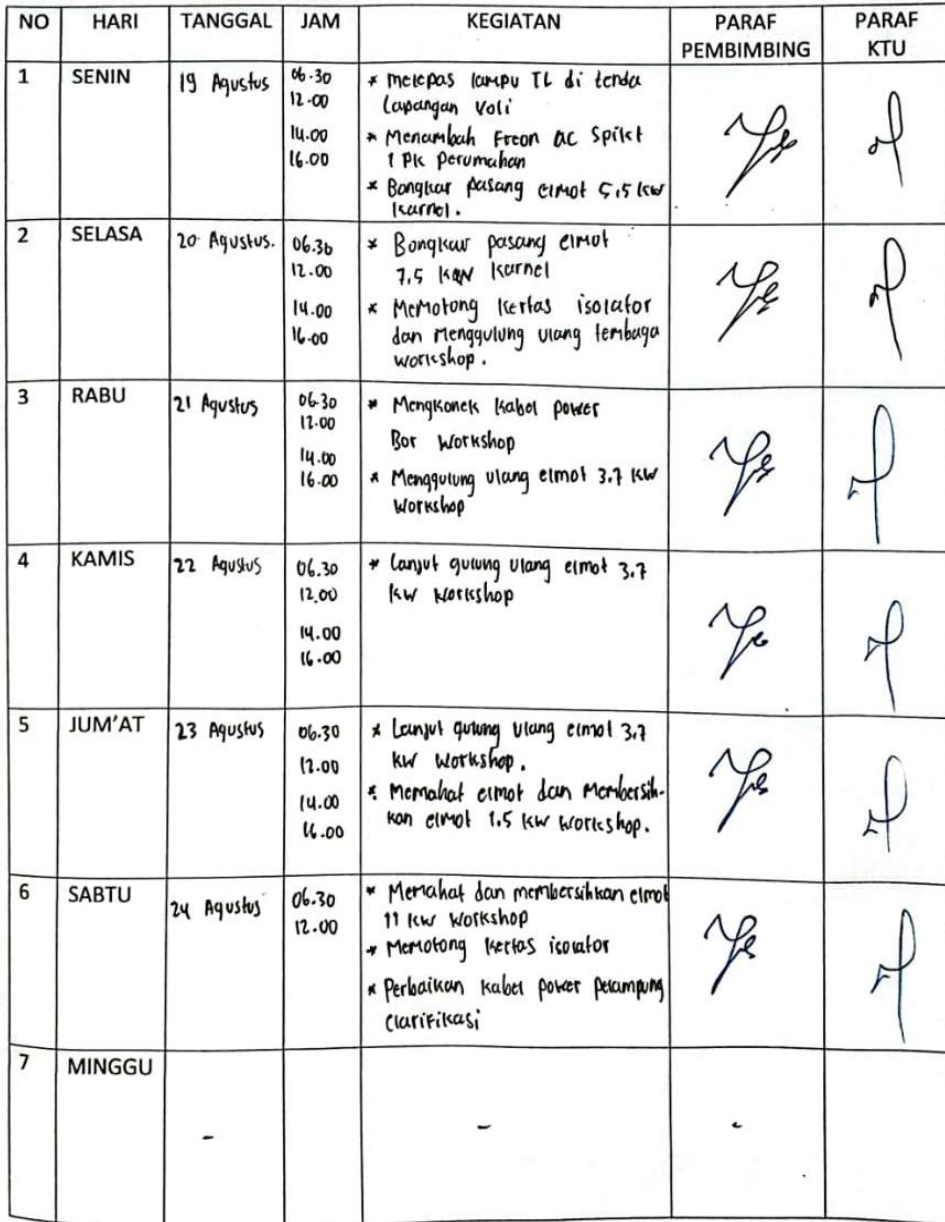 NO HARI TANGGAL JAM KEGIATAN PARAF PEMBIMBING PARAF KTU
1 SENIN 19 Agustus
06.30
12.00
14.00
16.00
* Melepas lampu TL di tenda
Lapangan Voli
* Menambah Freon AC Spilct
1 PK Perumahan
* Bongkar pasang elmot 5,5 kw
karnel.
2 SELASA 20 Agustus.
06.30
12.00
14.00
16.00
* Bongkar pasang elmot
7,5 kw karnel
* Memotong kertas isolator
dan Menggulung ulang tembaga
workshop.
3 RABU 21 Agustus
06.30
12.00
14.00
16.00
* Mengkonek kabel power
Bor Workshop
* Menggulung ulang elmot 3.7 kw
Workshop
4 KAMIS 22 Agustus
06.30
12.00
14.00
16.00
* Lanjut gulung ulang elmot 3,7
kw Workshop
5 JUM'AT 23 Agustus
06.30
12.00
14.00
16.00
* Lanjut gulung ulang elmot 3,7
kw Workshop.
* Memahat elmot dan Membersih-
kan elmot 1.5 kw workshop.
6 SABTU 24 Agustus
06.30
12.00
* Memahat dan membersihkan elmot
11 kw Workshop
* Memotong kertas isolator
* Perbaikan kabel power pelampung
Clarifikasi
7 MINGGU - - -